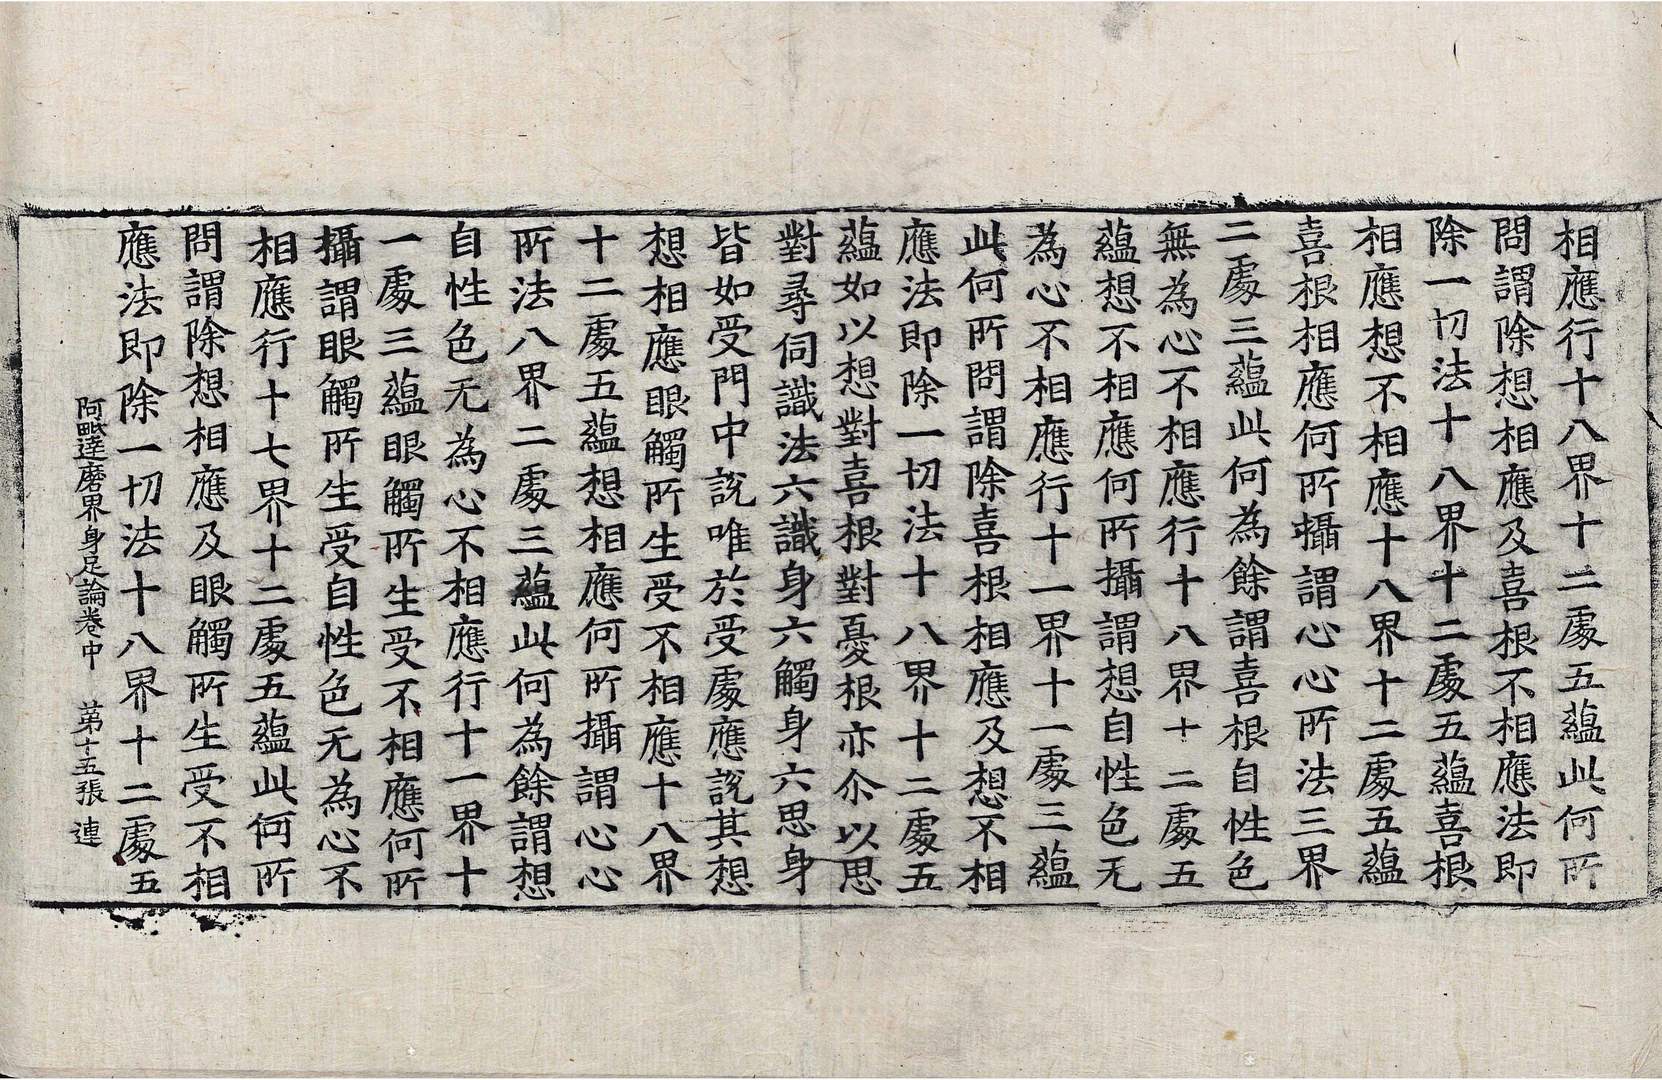 相應行十八界十二處五蘊此何所
問謂除想相應及喜根不相應法即
除一切法十八界十二處五蘊喜根
相應想不相應十八界十二處五蘊
喜根相應何所攝謂心心所法三界
二處三蘊此何為餘謂喜根自性色
無為心不相應行十八界十二處五
蘊想不相應何所攝謂想自性色无
為心不相應行十一界十一處三蘊
此何所問謂除喜根相應及想不相
應法即除一切法十八界十二處五
蘊如以想對喜根對憂根亦尒以思
對尋伺識法六識身六觸身六思身
皆如受門中說唯於受處應說其想
想相應眼觸所生受不相應十八界
十二處五蘊想相應何所攝謂心心
所法八界二處三蘊此何為餘謂想
自性色无為心不相應行十一界十
一處三蘊眼觸所生受不相應何所
攝謂眼觸所生受自性色无為心不
相應行十七界十二處五蘊此何所
問謂除想相應及眼觸所生受不相
應法即除一切法十八界十二處五
阿毗達磨界身足論卷中 第十五張 連